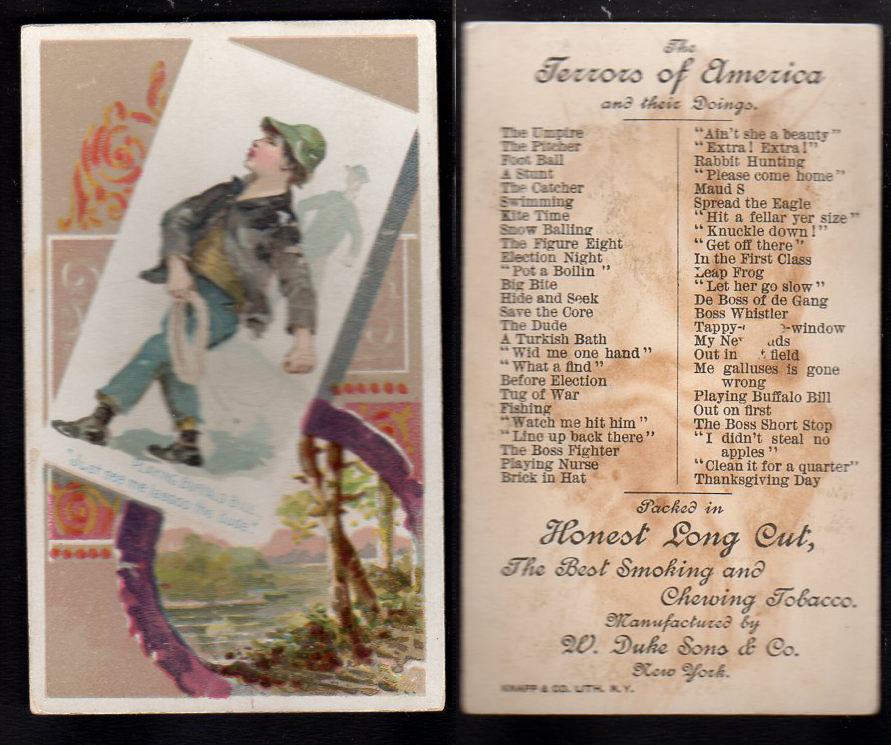 PLAYING BUFFALO BILL.
"Just see me lassoo the dude."
The
Terrors of America
and their Doings.
The Umpire
The Pitcher
Foot Ball
A Stunt
The Catcher
Swimming
Kite Time
Snow Balling
The Figure Eight
Election Night
"Pot a Boilin"
Big Bite
Hide and Seek
Save the Core
The Dude
A Turkish Bath
"Wid me one hand"
"What a find"
Before Election
Tug of War
Fishing
"Watch me hit him"
"Line up back there"
The Boss Fighter
Playing Nurse
Brick in Hat
"Ain't she a beauty"
"Extra! Extra!"
Rabbit Hunting
"Please come home"
Maud S
Spread the Eagle
"Hit a fellar yer size"
"Knuckle down!"
"Get off there"
In the First Class
Leap Frog
"Let her go slow"
De Boss of de Gang
Boss Whistler
Tappy- -window
My
Out in field
Me galluses is gone
wrong
Playing Buffalo Bill
Out on first
The Boss Short Stop
"I didn't steal no
apples"
"Clean it for a quarter"
Thanksgiving Day
Packed in
Honest Long Cut,
The Best Smoking and
Chewing Tobacco.
Manufactured by
W. Duke Sons & Co.
New York.
KNAPP & CO. LITH. N.Y.